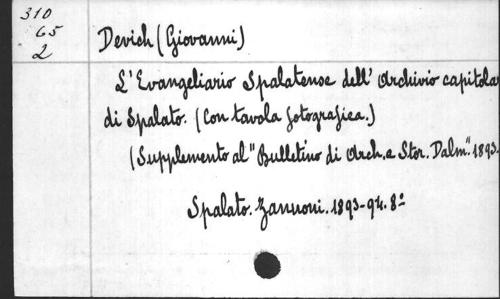 310
65
2
Devich (Giovanni)
L'Evangeliario Spalatense dell' Archivio capitolar
di Spalato. (Con tavola fotografica.)
(Supplemento al "Bullettino di Arch. e Stor. Dalm." 1893-
Spalato. Zannoni. 1893-94. 8º